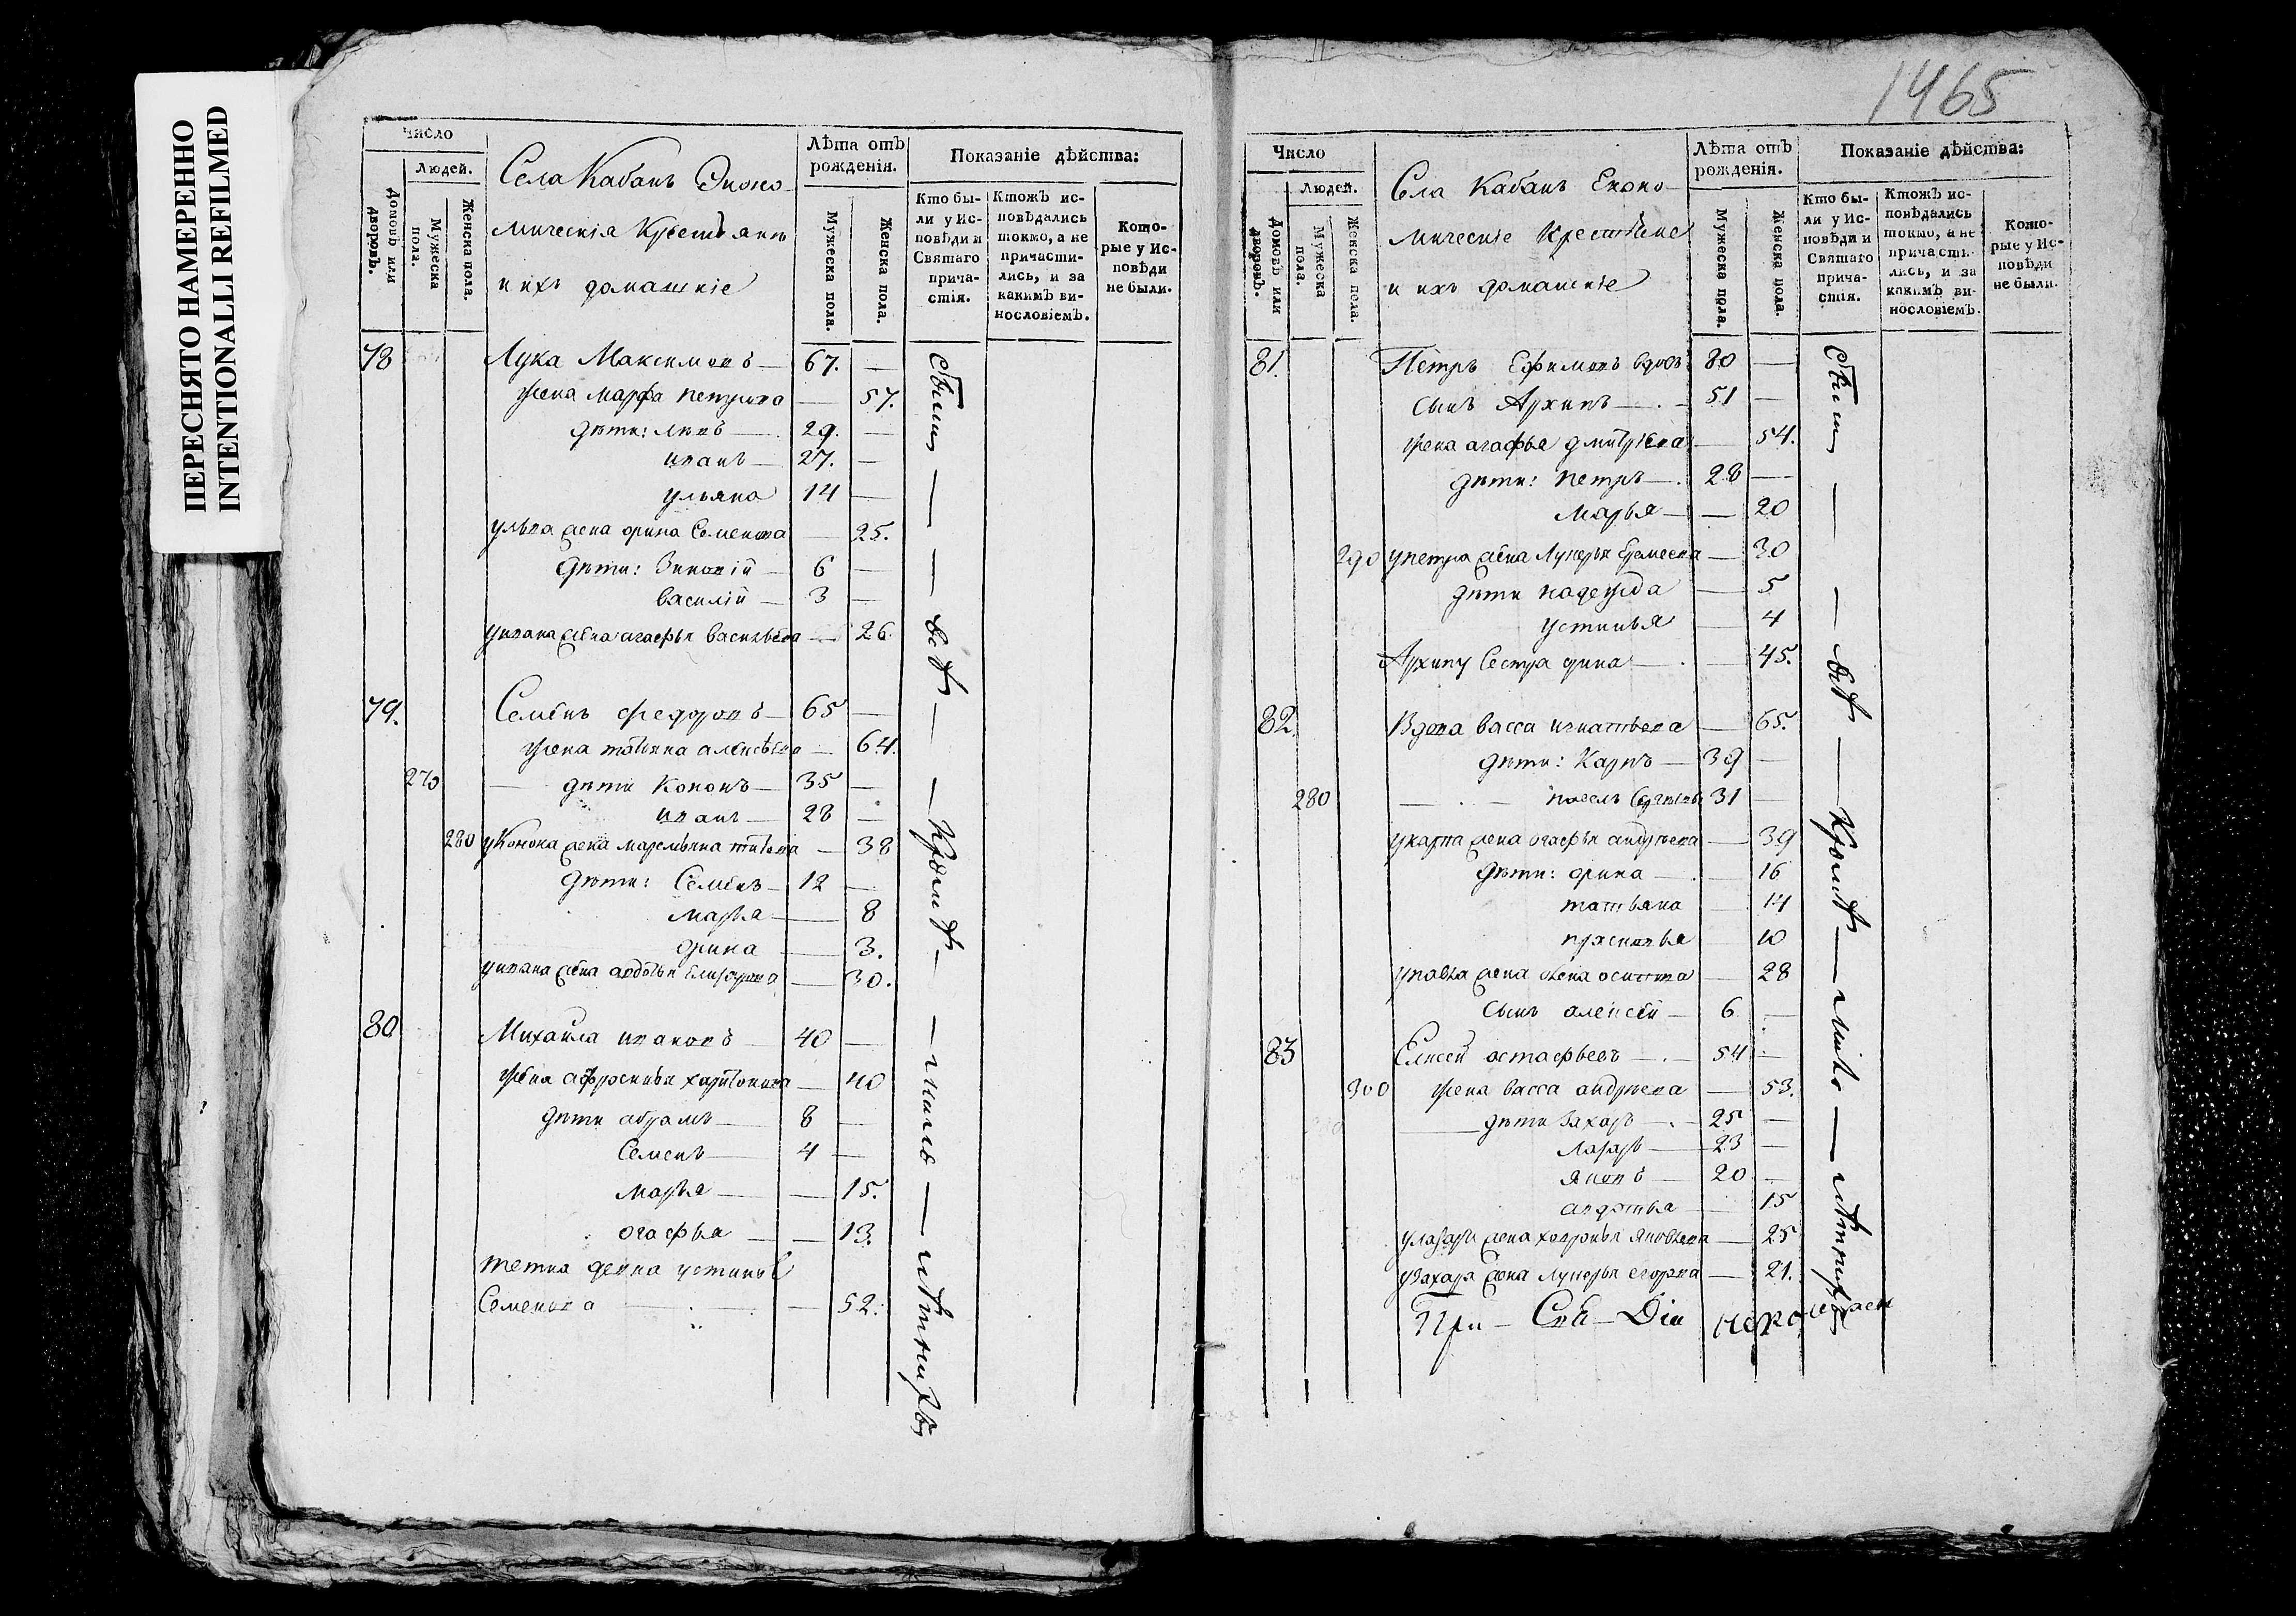 ПЕРЕСНЯТО НАМЕРЕННО
INTENTIONALLI REFILMED
Число
Людей.
Домовъ или дворовъ.
Мужеска пола.
Женска пола.
Села Кабанъ Эконо-
мическія Крестьянъ
и ихъ домашніе
Лѣта отъ рожденія.
Мужеска пола.
Женска пола.
Показаніе дѣйства:
Кто бы-
ли у Ис-
повѣди и
Святаго
прича-
стія.
Ктожъ ис-
повѣдались
токмо, а не
причасти-
лись, и за
какимъ ви-
нословіемъ.
Кото-
рые у Ис-
повѣди
не были.
78 Лука Максимовъ — 67. —
жена марфа петрова — 57.
дѣти: — 29. —
иванъ — 27. —
ульяна 14 —
жена орина Семенова — 25.
дѣти: Зиновій — 6 —
василій — 3 —
уивана жена агафья васильева — 26.
79. Семенъ федоровъ — 65 —
жена татьяна алексѣева — 64.
270 — дѣти Кононъ — 35 —
иванъ — 28 —
280 уКонона жена маремьяна титова — 38
дѣти: Семенъ — 12 —
марья — 8
орина — 3.
уивана жена авдотья — 30.
80 Михайла ивановъ 40 —
жена афросинья харитонова — 40
дѣти абрамъ — 8 —
Семенъ — 4 —
марья — — 15.
огафья — — 13.
тетка девка устинья
Семенова — — 52.
были — — всѣ — — Кромѣ — — — лѣтнихъ
1465
Число
Людей.
Домовъ или дворовъ.
Мужеска пола.
Женска пола.
Села Кабанъ Еконо-
мическіе Крестьяне
и ихъ домашніе
Лѣта отъ рожденія.
Мужеска пола.
Женска пола.
Показаніе дѣйства:
Кто бы-
ли у Ис-
повѣди и
Святаго
прича-
стія.
Ктожъ ис-
повѣдались
токмо, а не
причасти-
лись, и за
какимъ ви-
нословіемъ.
Кото-
рые у Ис-
повѣди
не были.
81. Петръ Ефимовъ вдовъ 80 —
сынъ Архипъ — 51 —
жена агафья дмитрѣева — 54.
дѣти: петръ — 28 —
марья — — 20
290 упетра жена Лукерья — 30
дѣти надежда — 5
устинья — 4
Архипу Сестра орина — — 45.
82. Вдова васса игнатьева — 65.
дѣти: Карпъ — 39 —
280 — павелъ 31 —
укарпа жена огафья андрѣева — 39
дѣти: орина — — 16
татьяна — 14
прасковья — 10
упавла жена осипова — 28
сынъ алексѣй — 6 —
83 Елисей остафьевъ — 54 —
300 жена васса андрѣева — 53.
дѣти Захаръ — 25 —
Лазарь — 23 —
яковъ — 20 —
авдотья — 15
улазаря жена ховронья яковлева — 25
узахара жена лукерья егорова — 21.
были — — всѣ — Кромѣ — — — лѣтнихъ